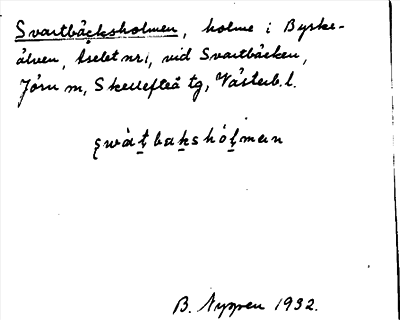 Svartbäcksholmen, holme i Byske-
älven, Åselet nr 1, vid Svartbäcken,
Jörn sn, Skellefteå tg, Västerb. l.
B. Nyman 1932.